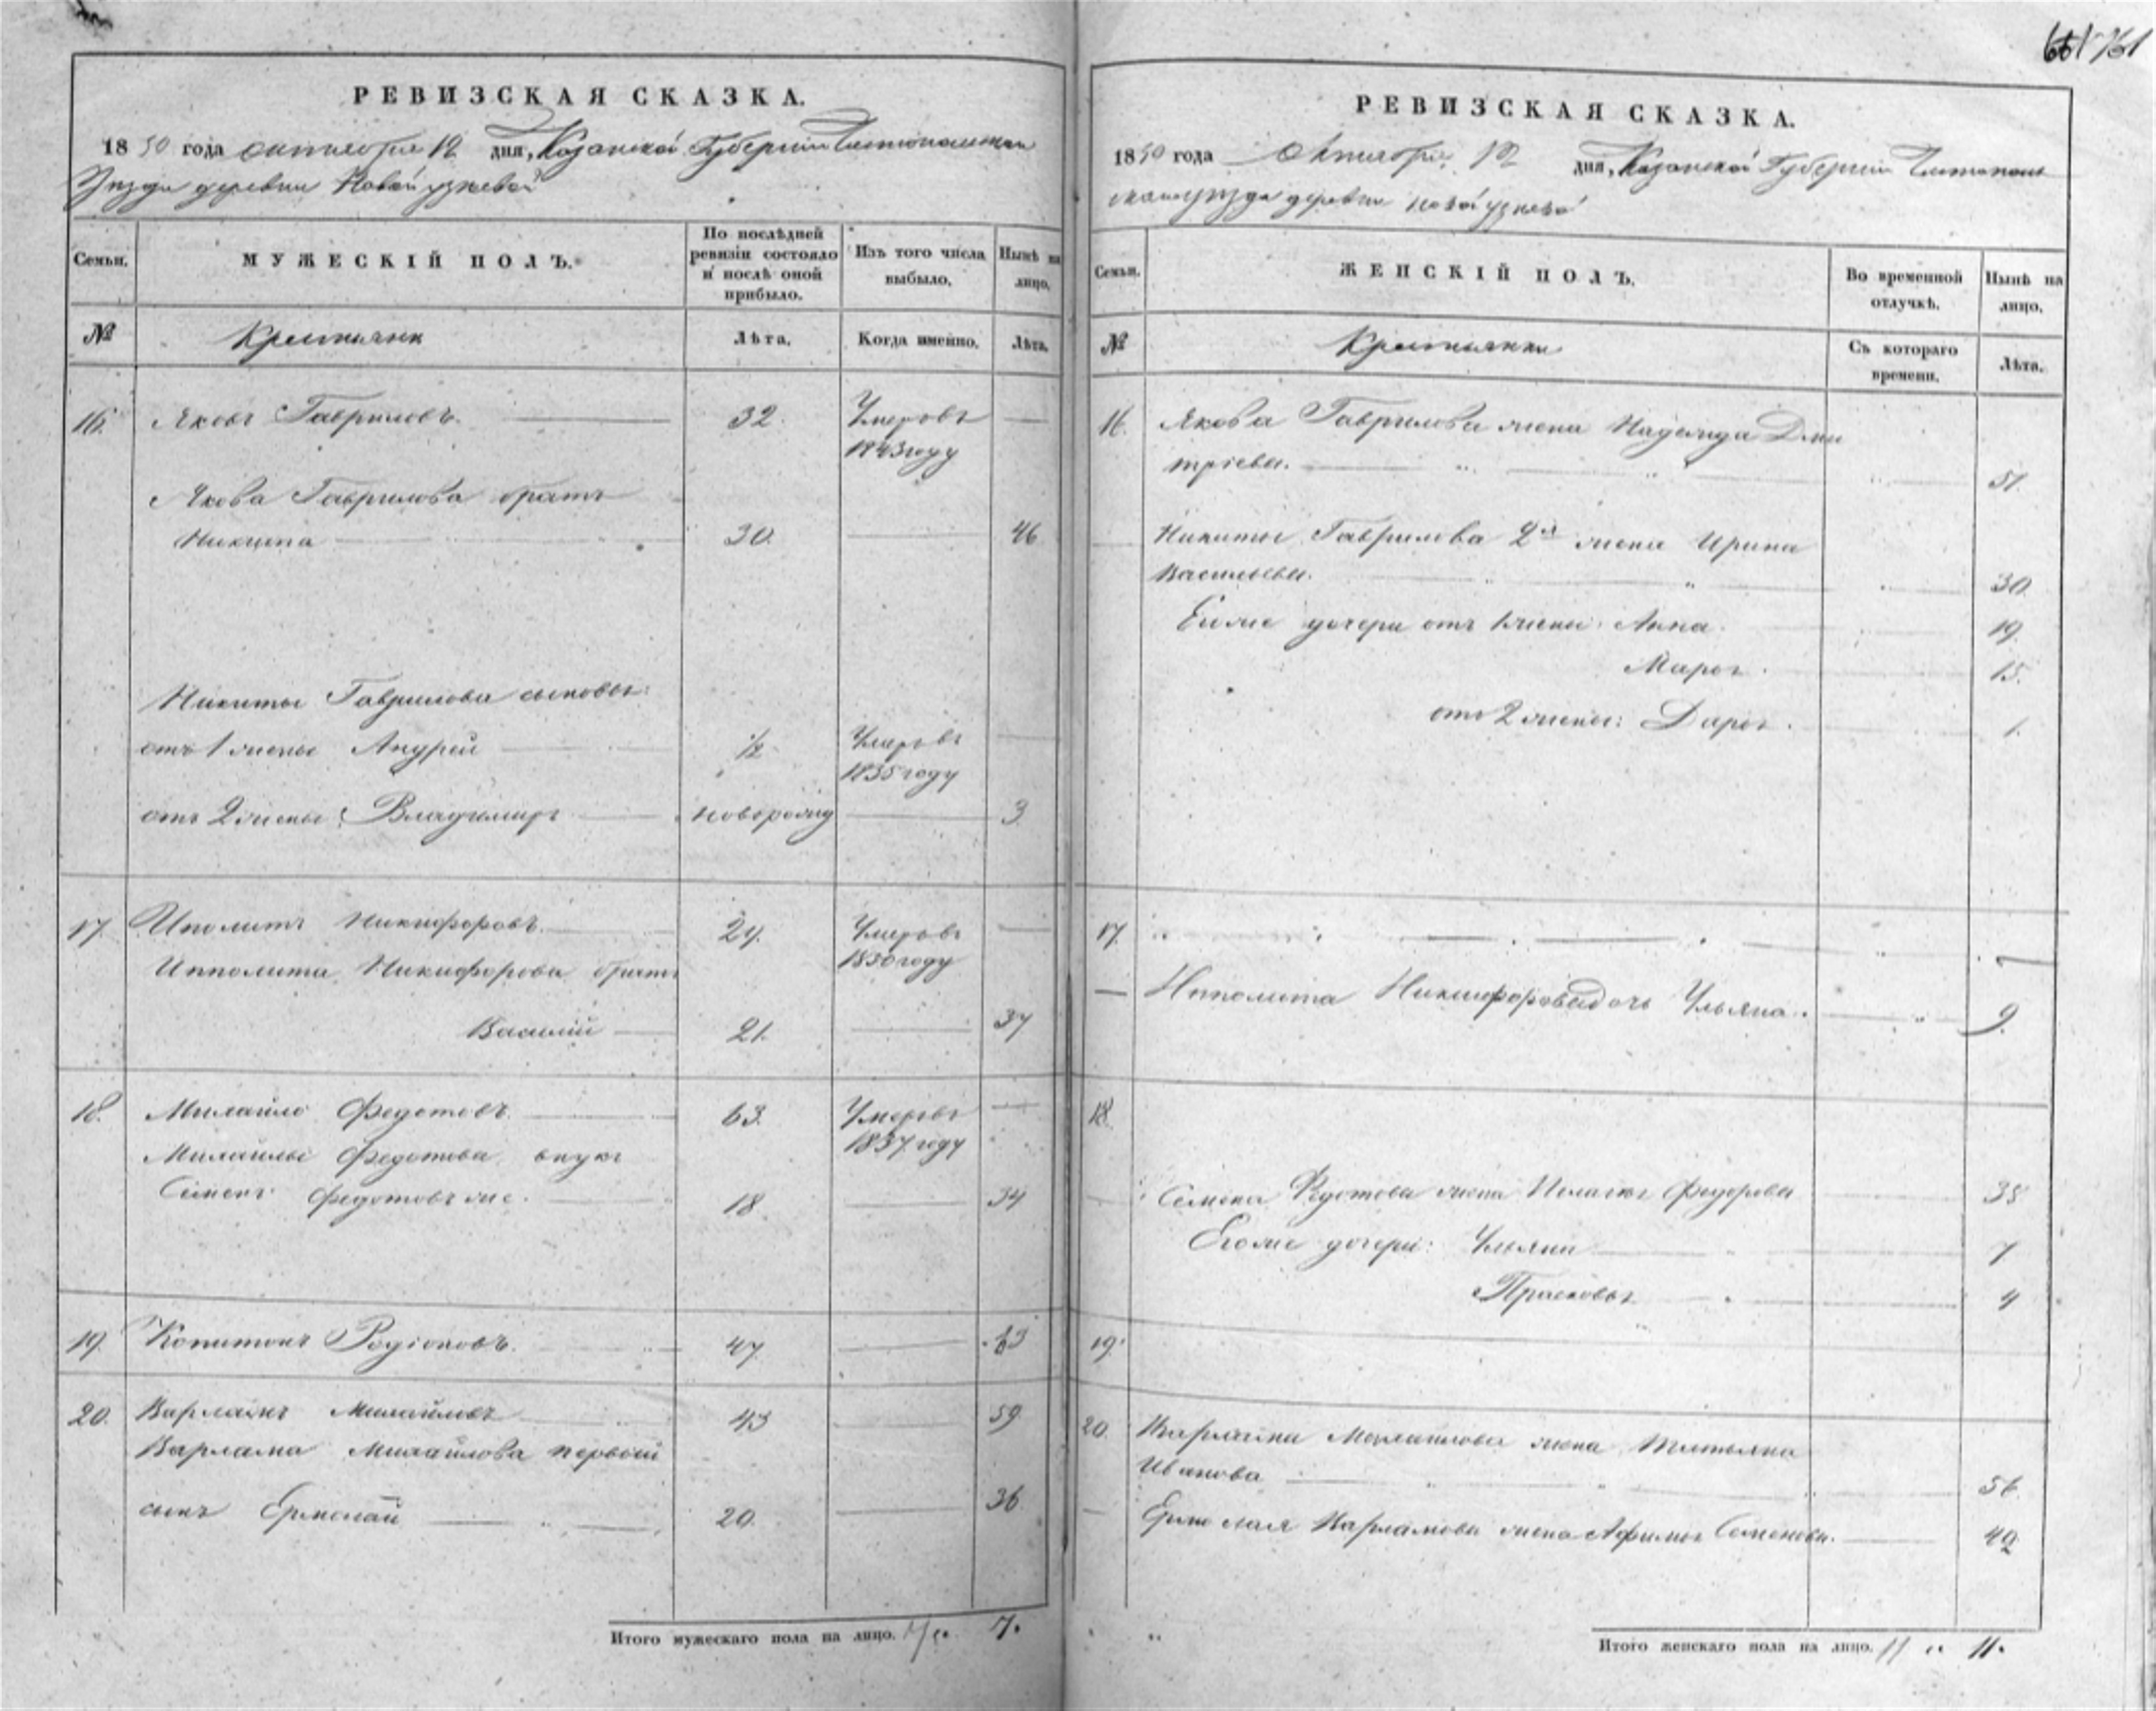 661 761
РЕВИЗСКАЯ СКАЗКА.
1850 года октября 12 дня, Казанской Губернии Чистопольскаго
Уѣзда деревни Новой
Семьи.
МУЖЕСКІЙ ПОЛЪ.
По послѣдней ревизіи состояло и послѣ оной прибыло.
Изъ того числа выбыло.
Нынѣ на лицо.
№
Крестьяне
Лѣта.
Когда именно.
Лѣта.
16. Яковъ Гавриловъ. 32. Умеръ въ —
1843 году
Якова Гаврилова братъ
Никита 30. — 46
Никиты Гаврилова сыновья:
отъ 1 жены Андрей 1/2 Умеръ въ —
1835 году
отъ 2 жены: Владимиръ новорожд — 3
17. Иполитъ Никифоровъ. 24. Умеръ въ —
1850 году
Ипполита Никифорова братъ
Василій 21. — 37
18. Михайло Федотовъ. 63. Умеръ въ —
1837 году
Михайлы Федотова внукъ
Семенъ Федотовъ же. 18. — 34
19. Капитонъ Родіоновъ. 47. — 63
20. Варламъ Михайловъ 43 — 59
Варлама Михайлова первый
сынъ Ермолай 20. — 36
Итого мужескаго пола на лицо. 7. 7.
РЕВИЗСКАЯ СКАЗКА.
1850 года Октября 12 дня, Казанской Губерніи Чистополь
скаго уѣзда деревни новой
Семьи.
ЖЕНСКІЙ ПОЛЪ.
Во временной отлучкѣ.
Нынѣ на лицо.
№
Крестьянки
Съ котораго времени.
Лѣта.
16. Якова Гаврилова жена Надежда Дми
тріева. 51.
Никиты Гаврилова 2я жена Ирина
Васильева. 30.
Его же дочери отъ 1 жены: Анна. 19.
Марья. 15.
отъ 2 жены: Дарья. 1.
17.
— Ипполита Никифорова дочь Ульяна. 9.
18.
Семена Федотова жена Пелагея Федорова 35
Его же дочери: Ульяна 7
Прасковья 4
19.
20. Варлама Михайлова жена Татьяна
Иванова 56.
— Ермолая Варламова жена Афимья Семенова. 42
Итого женскаго пола на лицо. 11 11.